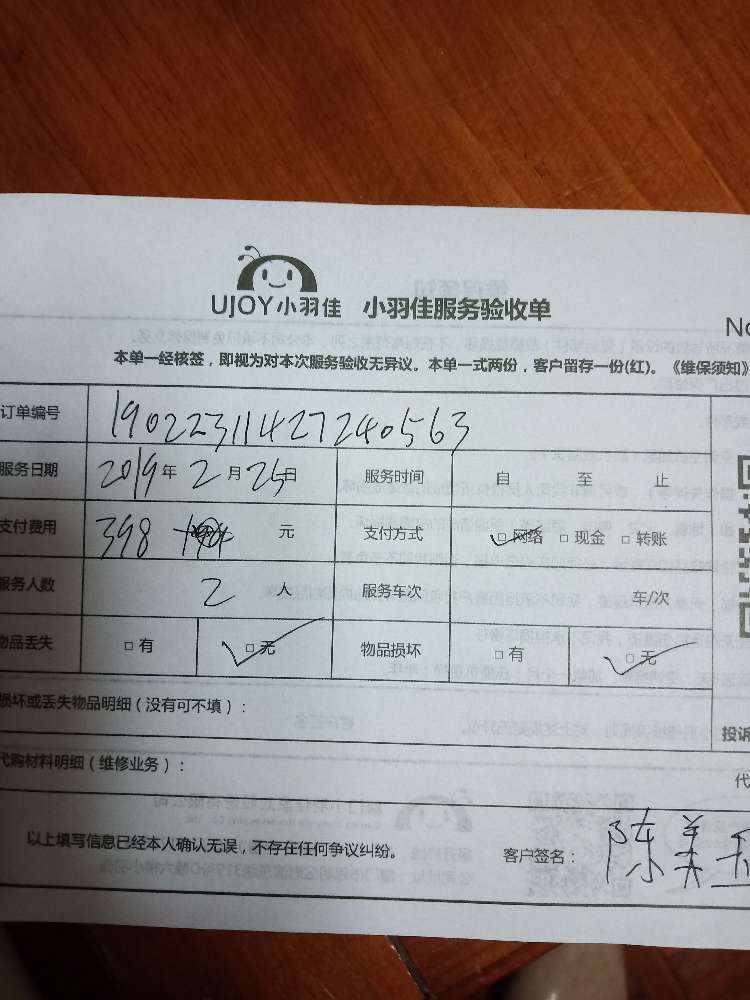 UJOY小羽佳 小羽佳服务验收单
No
本单一经核签，即视为对本次服务验收无异议。本单一式两份，客户留存一份(红)。《维保须知》
订单编号 190223114272740563
服务日期 2019年2月25日 服务时间 自 至 止
支付费用 398 元 支付方式 □网络 □现金 □转账
服务人数 2 人 服务车次 车/次
物品丢失 □有 □无 物品损坏 □有 □无
损坏或丢失物品明细（没有可不填）：
投诉
代购材料明细（维修业务）：
代
以上填写信息已经本人确认无误，不存在任何争议纠纷。 客户签名：陈美